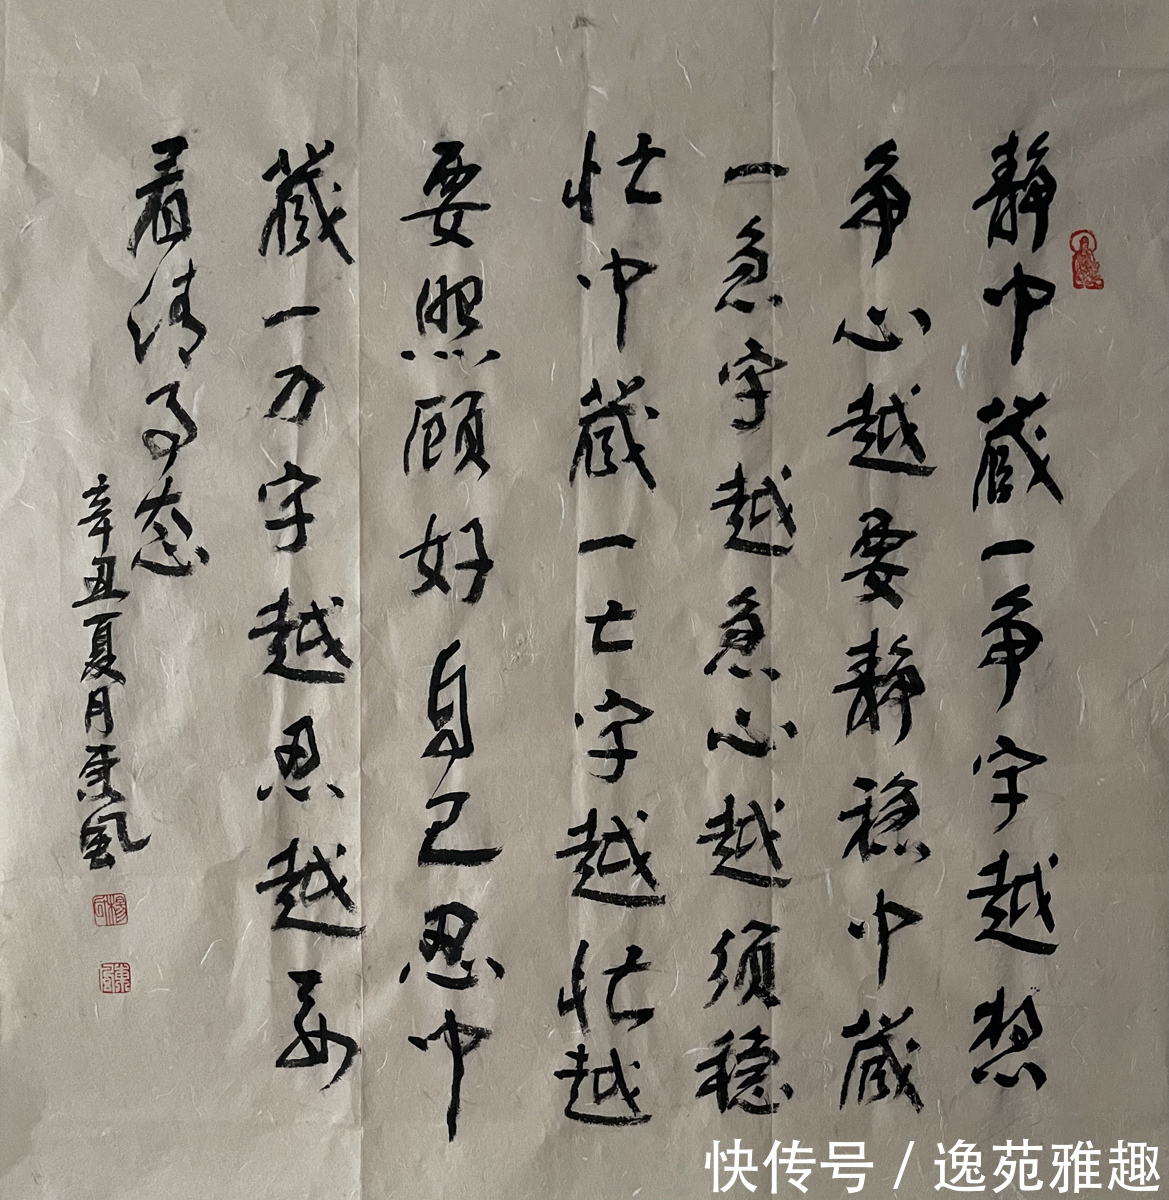 静中藏一争字越想
争心越要静稳中藏
一急字越急心越须稳
忙中藏一亡字越忙越
要照顾好自己忍中
藏一刀字越忍越要
看清事态
辛丑夏月東風
快传号 / 逸苑雅趣